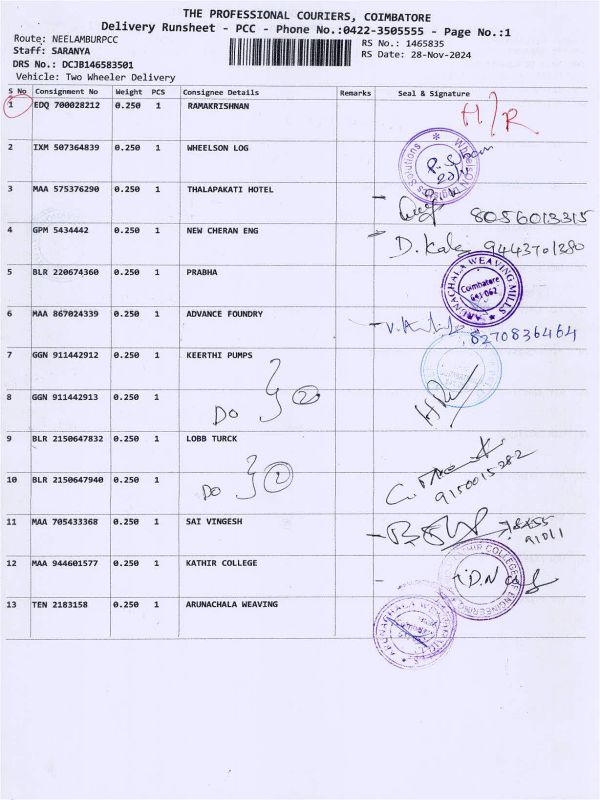 THE PROFESSIONAL COURIERS, COIMBATORE
Delivery Runsheet - PCC - Phone No.:0422-3505555 - Page No.:1
Route: NEELAMBURPCC
RS No.: 1465835
Staff: SARANYA
RS Date: 28-Nov-2024
DRS No.: DCJB146583501
Vehicle: Two Wheeler Delivery
S No Consignment No Weight PCS Consignee Details Remarks Seal & Signature
1 EDQ 700028212 0.250 1 RAMAKRISHNAN H/R
2 IXM 507364839 0.250 1 WHEELSON LOG
3 MAA 575376290 0.250 1 THALAPAKATI HOTEL 8056013315
4 GPM 5434442 0.250 1 NEW CHERAN ENG D. Kalai 9443701380
5 BLR 220674360 0.250 1 PRABHA
ARUNACHALA WEAVING MILLS
Coimbatore
641 062
6 MAA 867024339 0.250 1 ADVANCE FOUNDRY 8270836464
7 GGN 911442912 0.250 1 KEERTHI PUMPS
8 GGN 911442913 0.250 1 DO } 2
9 BLR 2150647832 0.250 1 LOBB TURCK
10 BLR 2150647940 0.250 1 DO } 2 9150015282
11 MAA 705433368 0.250 1 SAI VINGESH
12 MAA 944601577 0.250 1 KATHIR COLLEGE
13 TEN 2183158 0.250 1 ARUNACHALA WEAVING